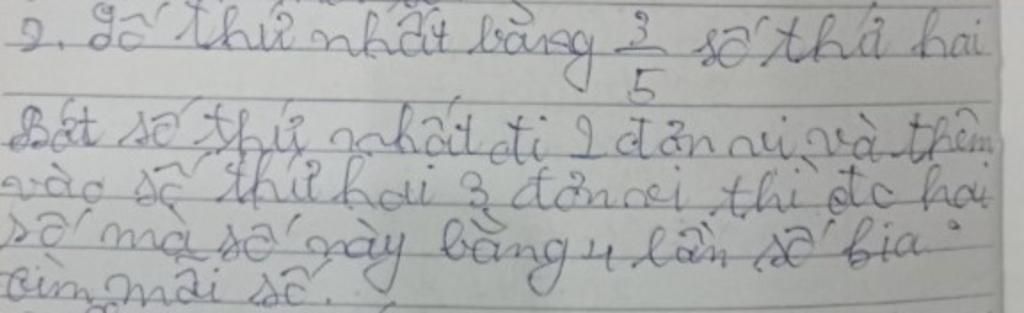 2. Số thứ nhất bằng 3/5 số thứ hai
Bớt số thứ nhất đi 2 đơn vị và thêm
vào số thứ hai 3 đơn vị thì đc hai
số mà số này bằng 4 lần số kia.
tìm mỗi số.